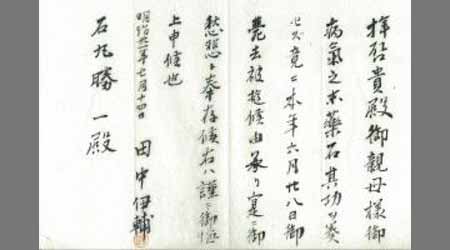 拝啓貴殿御親母様御
病氣之末薬石其功ヲ奏
セズ竟ニ本年六月廿八日御
薨去被遊候由承リ寔ニ御
愁悲ニ奉存候右ハ謹ニ御
上申候也
明治 年七月十四日
田中伊輔
石丸勝一殿